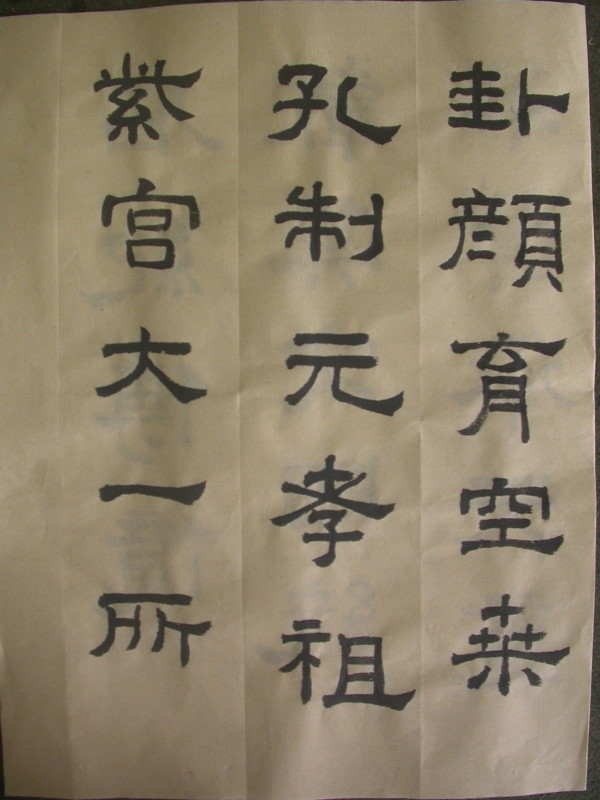 卦顏育空桒
孔制元孝祖
紫宮大一所